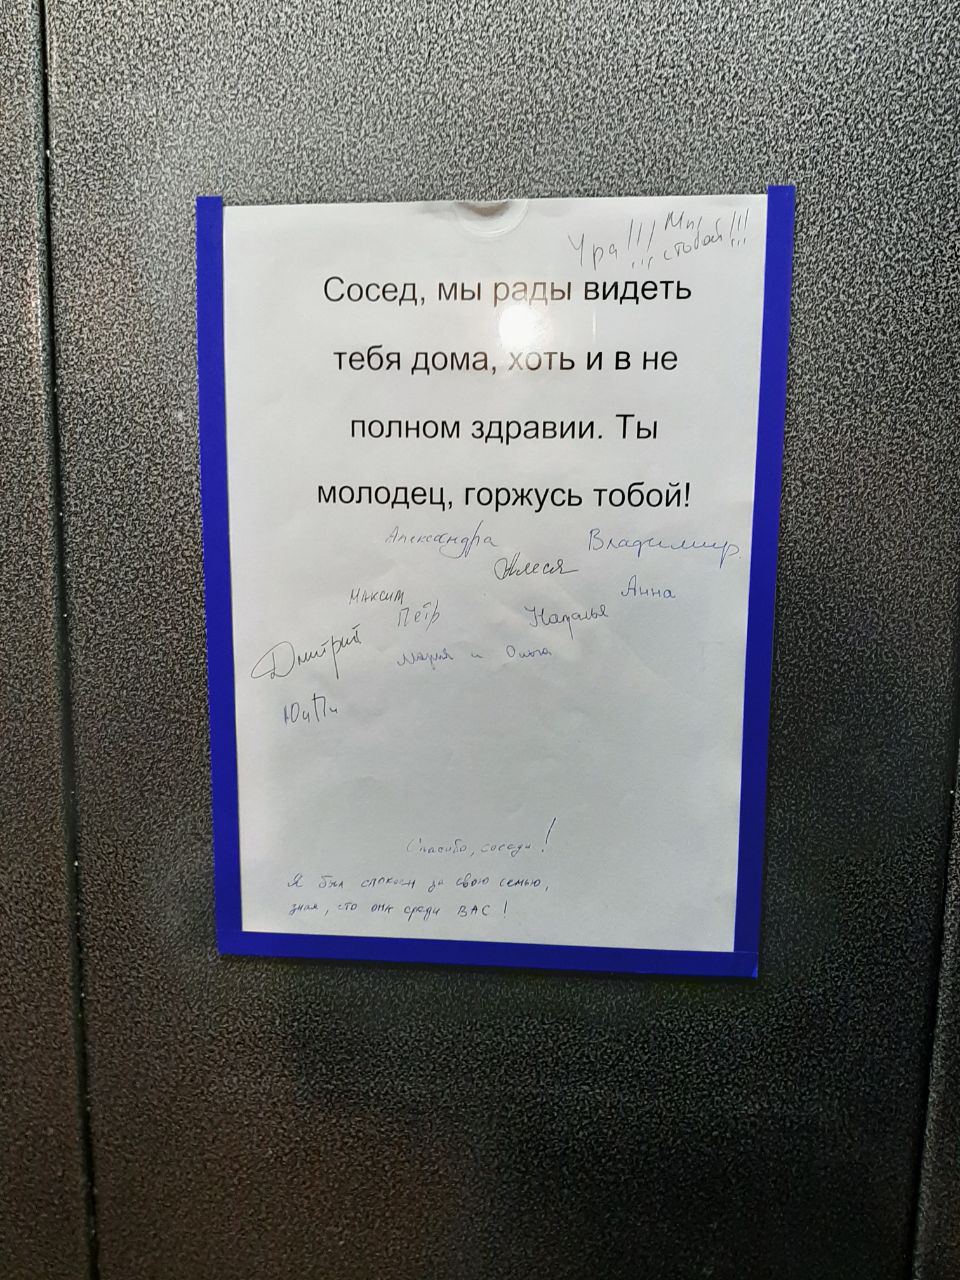 Ура!!! Мы
с тобой!!!
Сосед, мы рады видеть
тебя дома, хоть и в не
полном здравии. Ты
молодец, горжусь тобой!
Александра
Владимир
Алеся
Анна
Максим
Пётр
Наталья
Дмитрий
Мария и Ольга
Спасибо, соседи!
Я был спокоен за свою семью,
зная, что они среди ВАС!